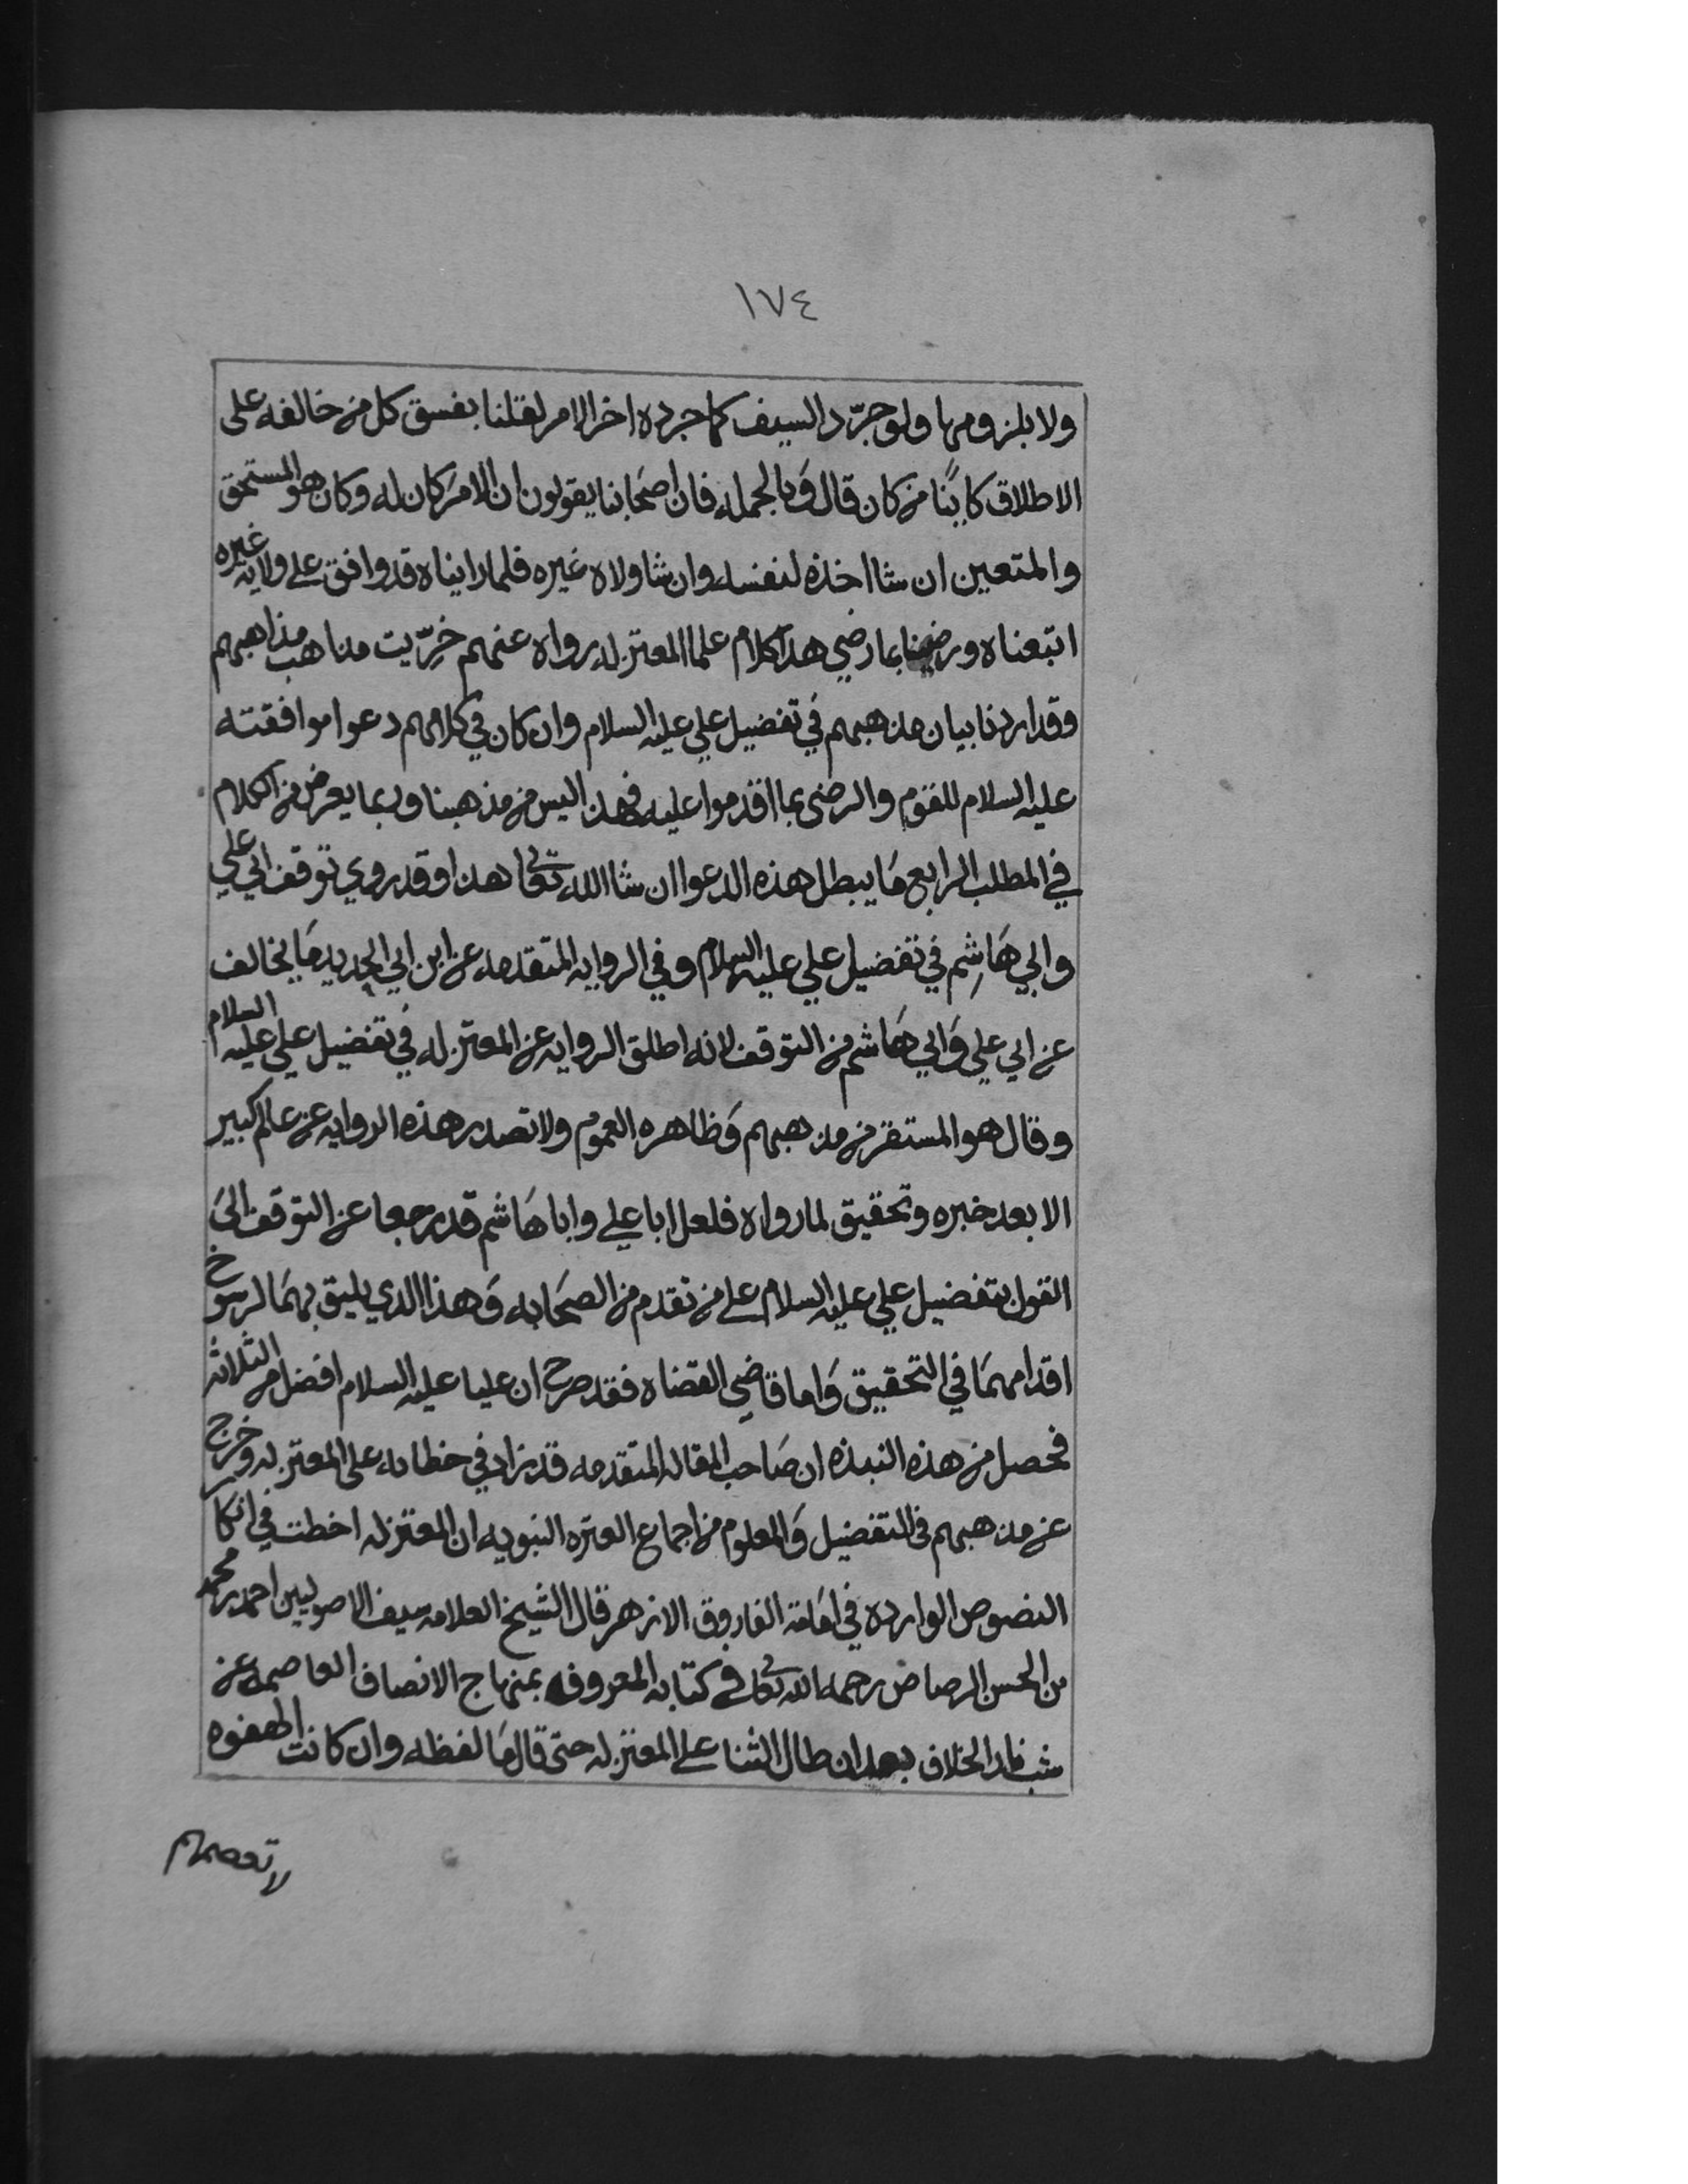 ١٧٤
ولا بلزومها ولو جرّد السيف كما جرده اخر الامر لقلنا بفسق كل من خالفه على
الاطلاق كاينًا من كان قال وَبالجمله فان اصحَابنا يقولون ان الامر كان له وكان هو المستحق
والمتعين ان شا اخذه لنفسه وان شا ولاه غيره فلما رايناه قد وافق على ولايه غيره
اتبعناه ورضينا بما رضي هذا كلام علما المعتزله رواه عنهم خِرّيت مذاهب مذاهبهم
وقد اردنا بيان مذهبهم في تفضيل علي عليه السلام وان كان في كلامهم دعوا موافقته
عليه السلام للقوم والرضى بما اقدموا عليه فهذا ليس من مذهبنا وربما يعرض من الكلام
في المطلب الرابع مَا يبطل هذه الدعوا ان شا الله تعالى هذا وقد روي توقف ابي علي
وابي هَاشم في تفضيل علي عليه السلام وفي الروايه المتقدمه عن ابن ابي الحديد مَا يخالف
عن ابي علي وَابي هَاشم من التوقف لانه اطلق الروايه عن المعتزله في تفضيل علي عليه السلام
وقال هو المستقر من مذهبهم وَظاهره العموم ولا تصدر هذه الروايه عن عالم كبير
الا بعد خبره وتحقيق لما رواه فلعل ابا علي وابا هَاشم قد رجعا عن التوقف الىَ
القول بتفضيل علي عليه السلام على من تقدم من الصحَابه وَهذا الذي يليق بهمَا لرسوخ
اقدامهمَا في التحقيق وَاما قاضي القضاه فقد صرح ان عليا عليه السلام افضل من الثلاثه
فحصل من هذه النبذه ان صَاحب المقاله المتقدمه قد زاد في خطابه على المعتزله وخرج
عن مذهبهم في التفضيل وَالمعلوم من اجماع العتره النبويه ان المعتزله اخطت في انكار
النصوص الوارده في امَامة الفاروق الازهر قال الشيخ العلامه سيف الاصوليين احمد بن محمد
بن الحسن الرصاص رحمه الله تعالى في كتابه المعروف بمنهاج الانصاف العاصمه عن
شب نار الخلاف بعد ان طال الثنا على المعتزله حتى قال مَا لفظه وان كانت لهفوه
لا تعصمهم